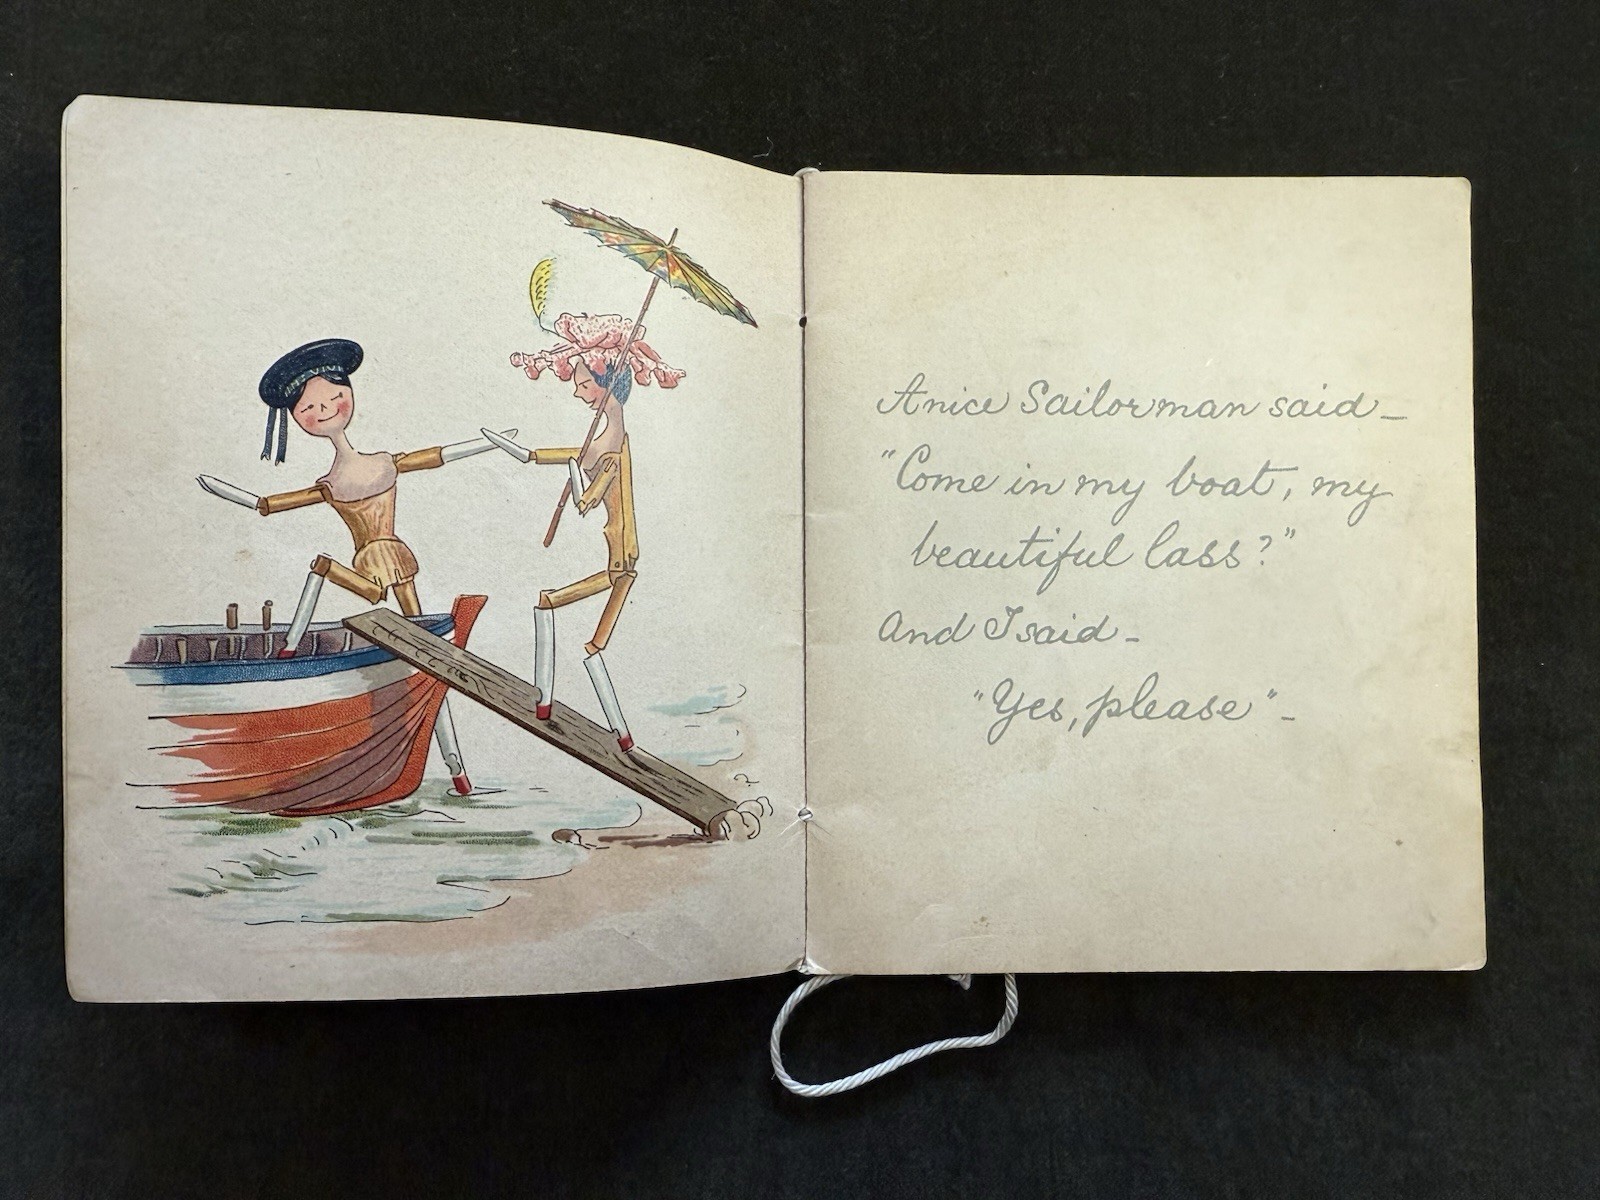 A nice Sailorman said –
"Come in my boat, my
beautiful lass?"
And I said –
"Yes, please" –